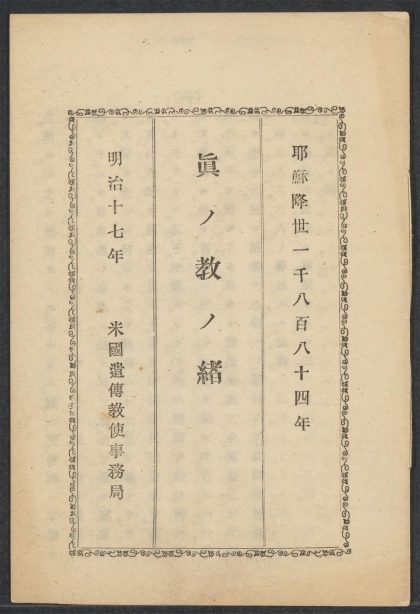 耶穌降世一千八百八十四年
眞ノ教ノ緒
明治十七年 米國遣傳教使事務局